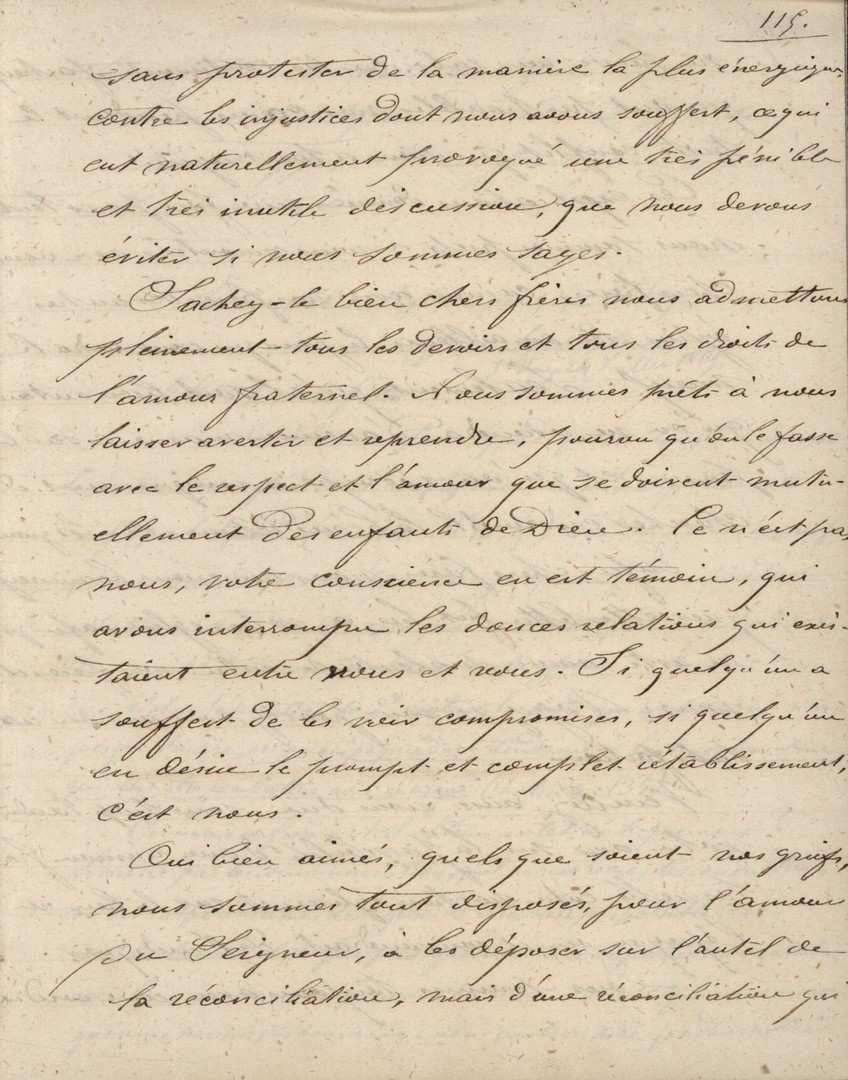 115.
sans protester de la manière la plus énergique
contre les injustices dont nous avons souffert, ce qui
eut naturellement provoqué une très pénible
et très inutile discussion, que nous devons
éviter si nous sommes sages.
Sachez-le bien chers frères nous admettons
pleinement tous les devoirs et tous les droits de
l'amour fraternel. Nous sommes prêts à nous
laisser avertir et reprendre, pourvu qu'on le fasse
avec le respect et l'amour que se doivent mutu-
ellement des enfants de Dieu. Ce n'est pas
nous, votre conscience en est témoin, qui
avons interrompu les douces relations qui exis-
taient entre nous et vous. Si quelqu'un a
souffert de les voir compromises, si quelqu'un
en désire le prompt et complet rétablissement,
c'est nous.
Oui bien aimés, quels que soient nos griefs,
nous sommes tout disposés, pour l'amour
du Seigneur, à les déposer sur l'autel de
la réconciliation, mais d'une réconciliation qui